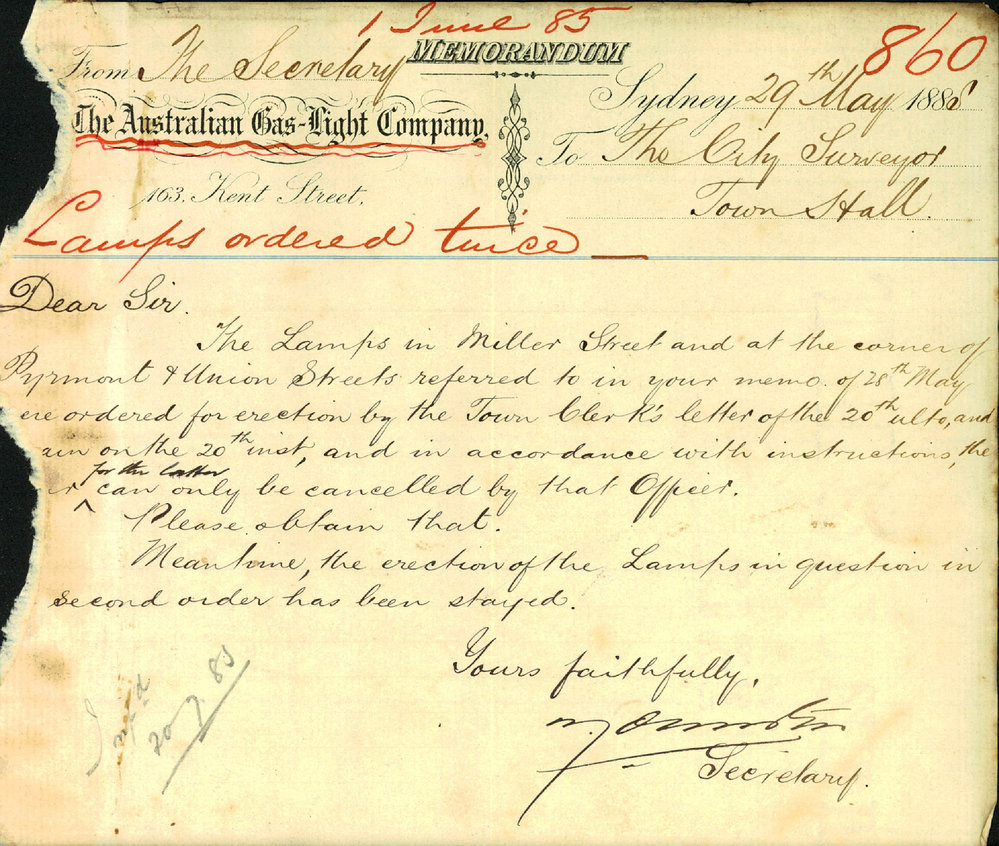 1 June 85
860
MEMORANDUM
From The Secretary
The Australian Gas-Light Company,
163, Kent Street.
Sydney 29th May 1885
To The City Surveyor
Town Hall.
Lamps ordered twice
Dear Sir.
The Lamps in Miller Street and at the corner of
Pyrmont & Union Streets referred to in your memo. of 28th May
ere ordered for erection by the Town Clerk's letter of the 20th ulto, and
ain on the 20th inst, and in accordance with instructions, the
er for the latter can only be cancelled by that Officer.
Please obtain that.
Meantime, the erection of the Lamps in question in
second order has been stayed.
Yours faithfully,
Secretary.
20 7 85